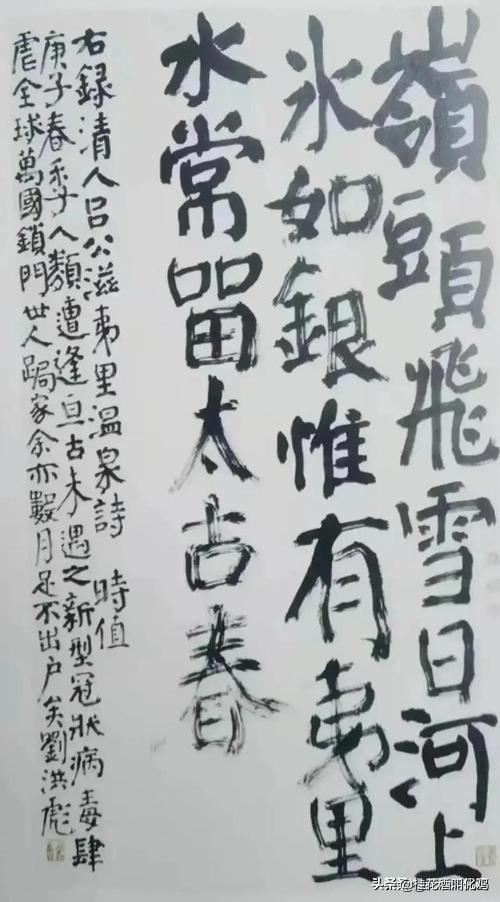 嶺頭飛雪日河上
氷如銀惟有夷里
水常畱太古春
右録清人吕公滋夷里温泉詩 時值
庚子春季人類遭逢亘古未遇之新型冠狀病毒肆
虐全球萬國鎖門世人跼家余亦數月足不出户矣劉洪彪
头条@桂花酒叫化鸡